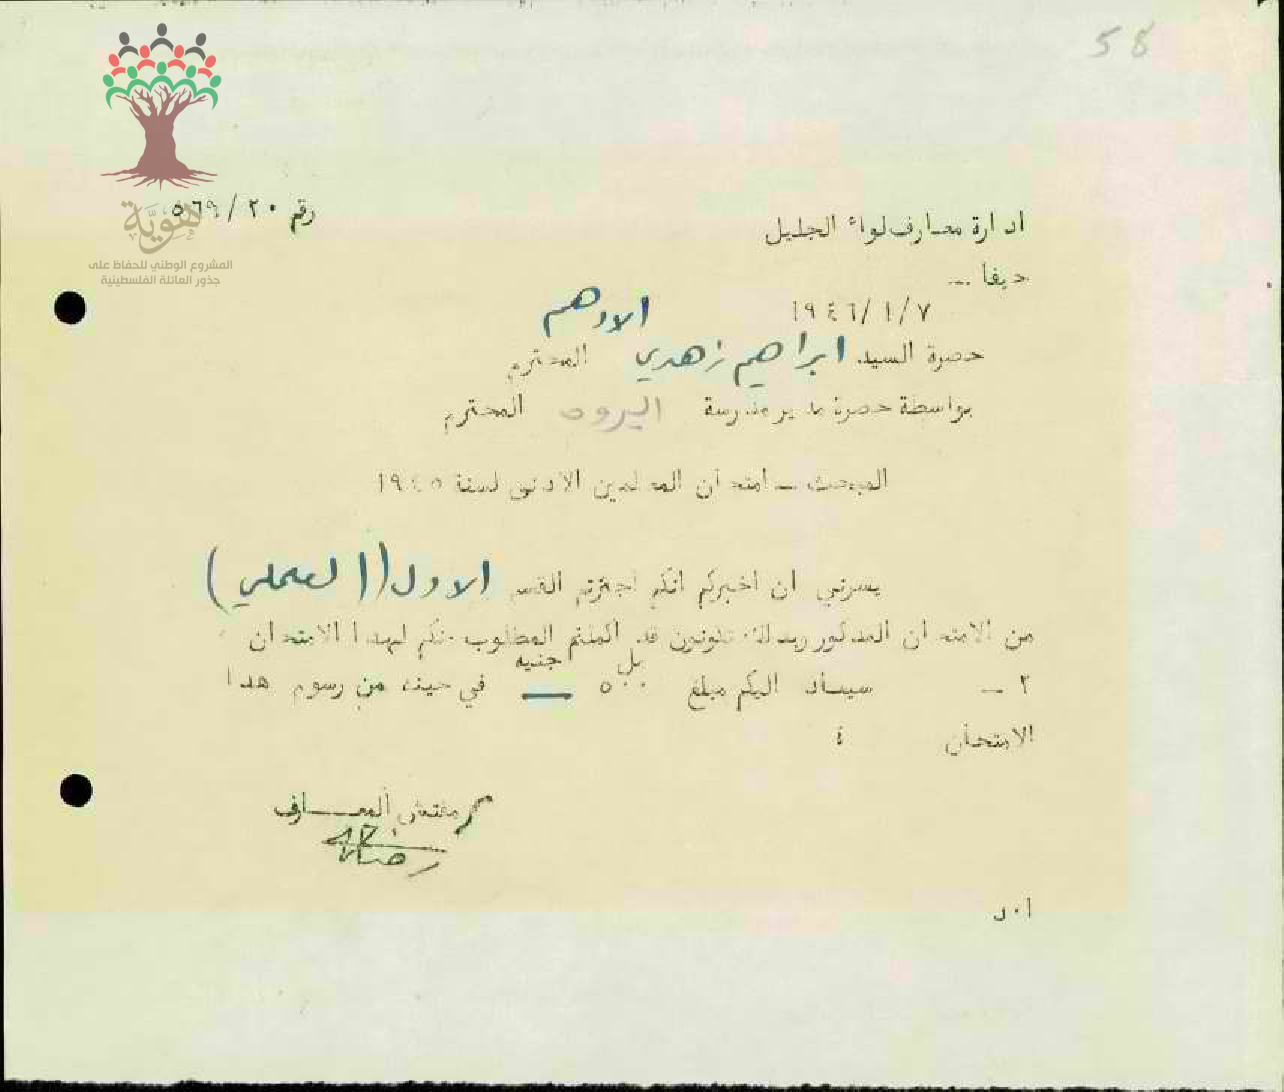 58
رقم ٢٠/ ٥٦٩
هوية
المشروع الوطني للحفاظ على
جذور العائلة الفلسطينية
ادارة معارف لواء الجليل
حيفا
١٩٤٦/١/٧
الادهم
حضرة السيد ابراهيم زهدي المحترم
بواسطة حضرة مدير مدرسة البروه المحترم
المبحث ــ امتحان المعلمين الادنى لسنة ١٩٤٥
يسرني ان اخبركم انكم اجتزتم القسم الاول (العملي)
من الامتحان المذكور وبذلك تكونون قد اكملتم المطلوب منكم لهذا الامتحان
مل جنيه
٢ ــ سيعاد اليكم مبلغ ٥٠٠ ــ في حينه من رسوم هذا
الامتحان
مفتش المعارف
ا٠د